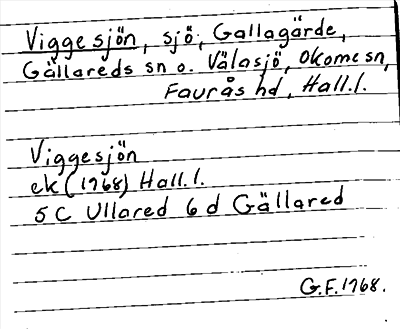 Viggesjön, sjö, Gallagärde,
Gällareds sn o. Välasjö, Okome sn,
Faurås hd, Hall.l.
Viggesjön
ek (1968) Hall.l.
5 C Ullared 6 d Gällared
G.F. 1968.